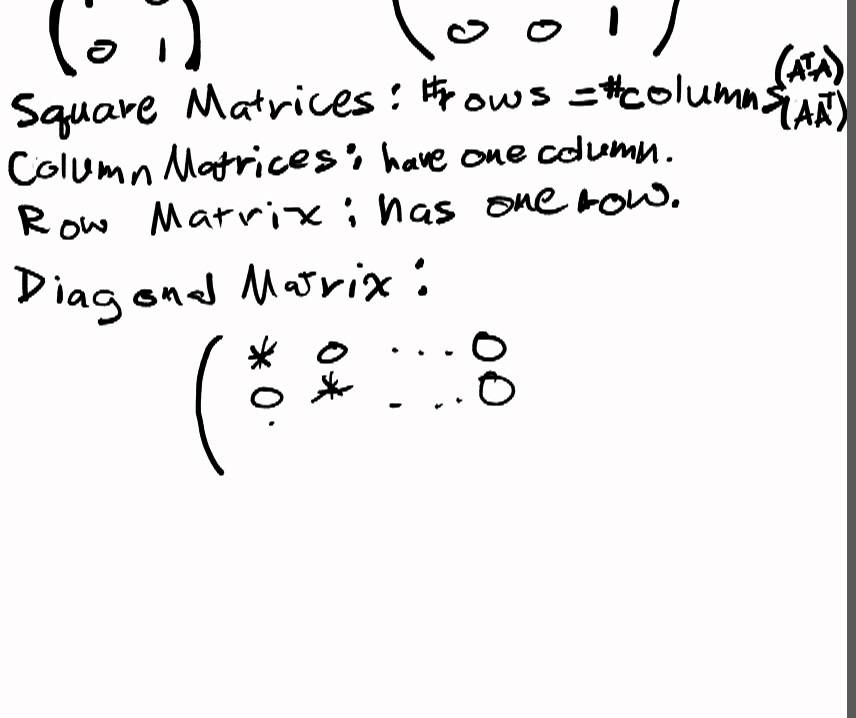 0 1 ) 0 0 1 )
Square Matrices: #rows = #columns (AᵀA)
(AAᵀ)
Column Matrices: have one column.
Row Matrix: has one row.
Diagonal Matrix:
( * 0 ... 0
0 * - ... 0
.